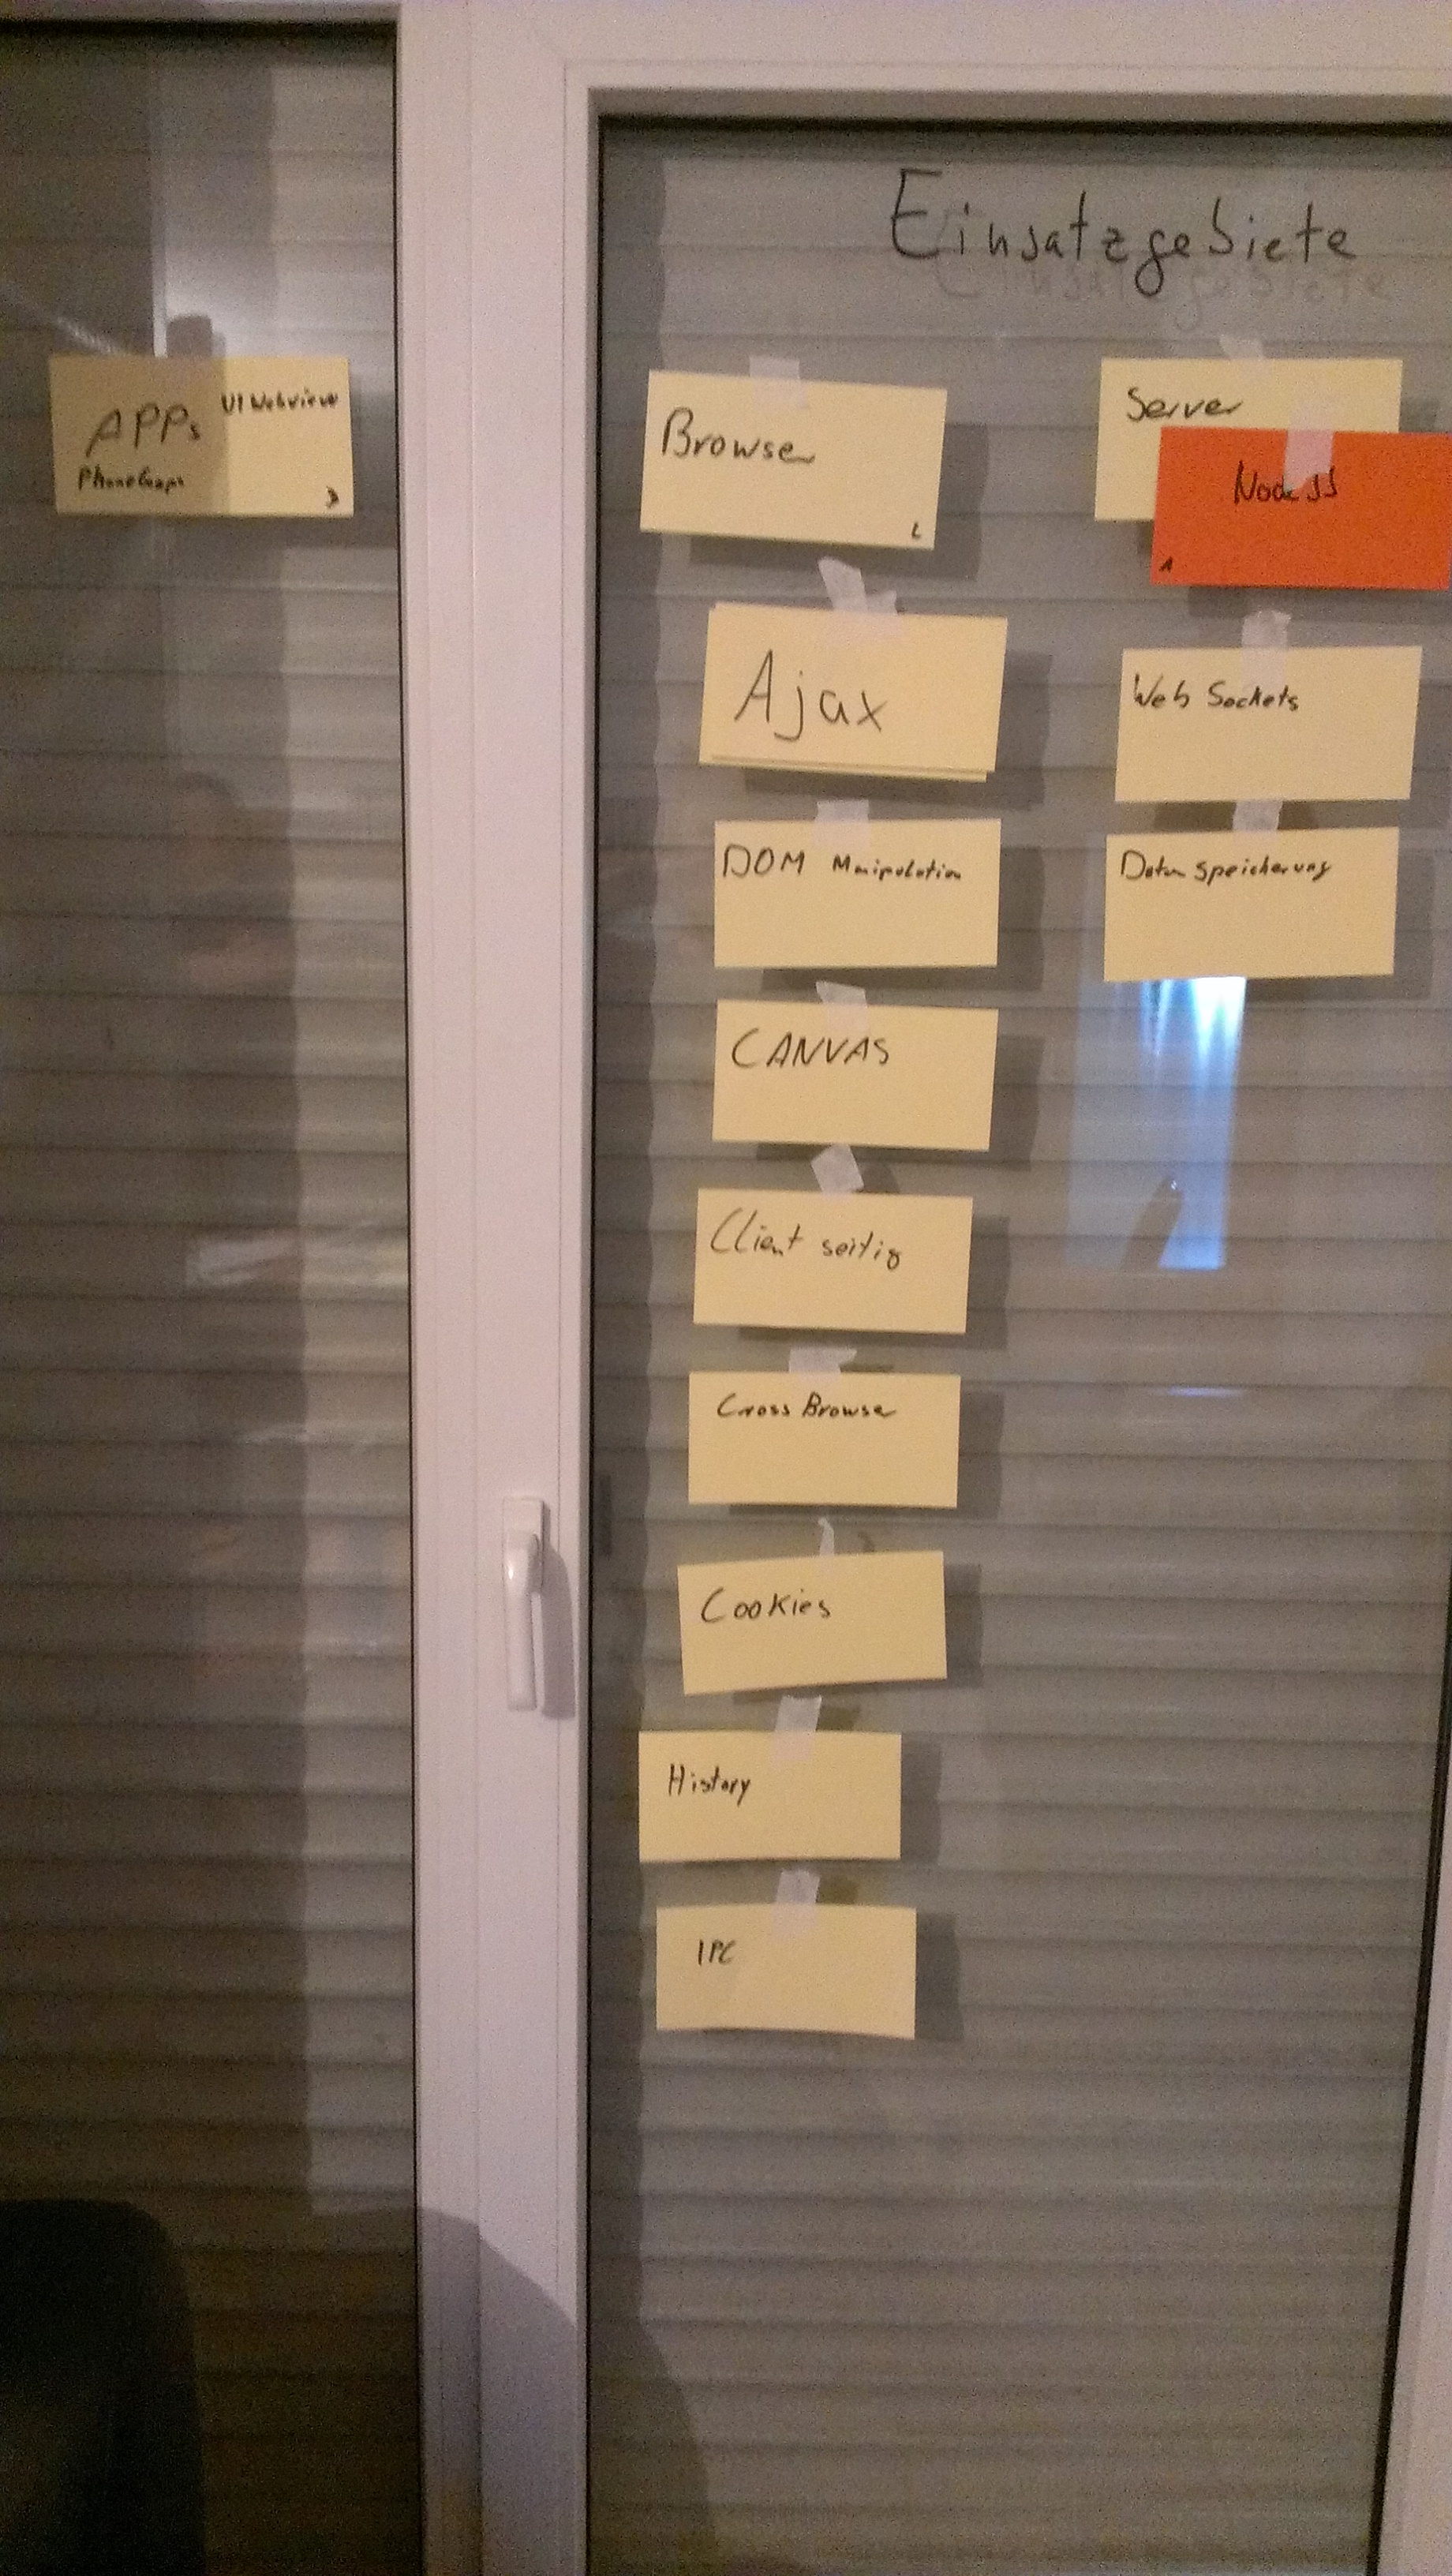 Einsatzgebiete
APPs UIWebview
PhoneGaps
3
Browser
2
Ajax
DOM Manipulation
CANVAS
Client seitig
Cross Browser
Cookies
History
IPC
Server
Node JS
1
Web Sockets
Datenspeicherung